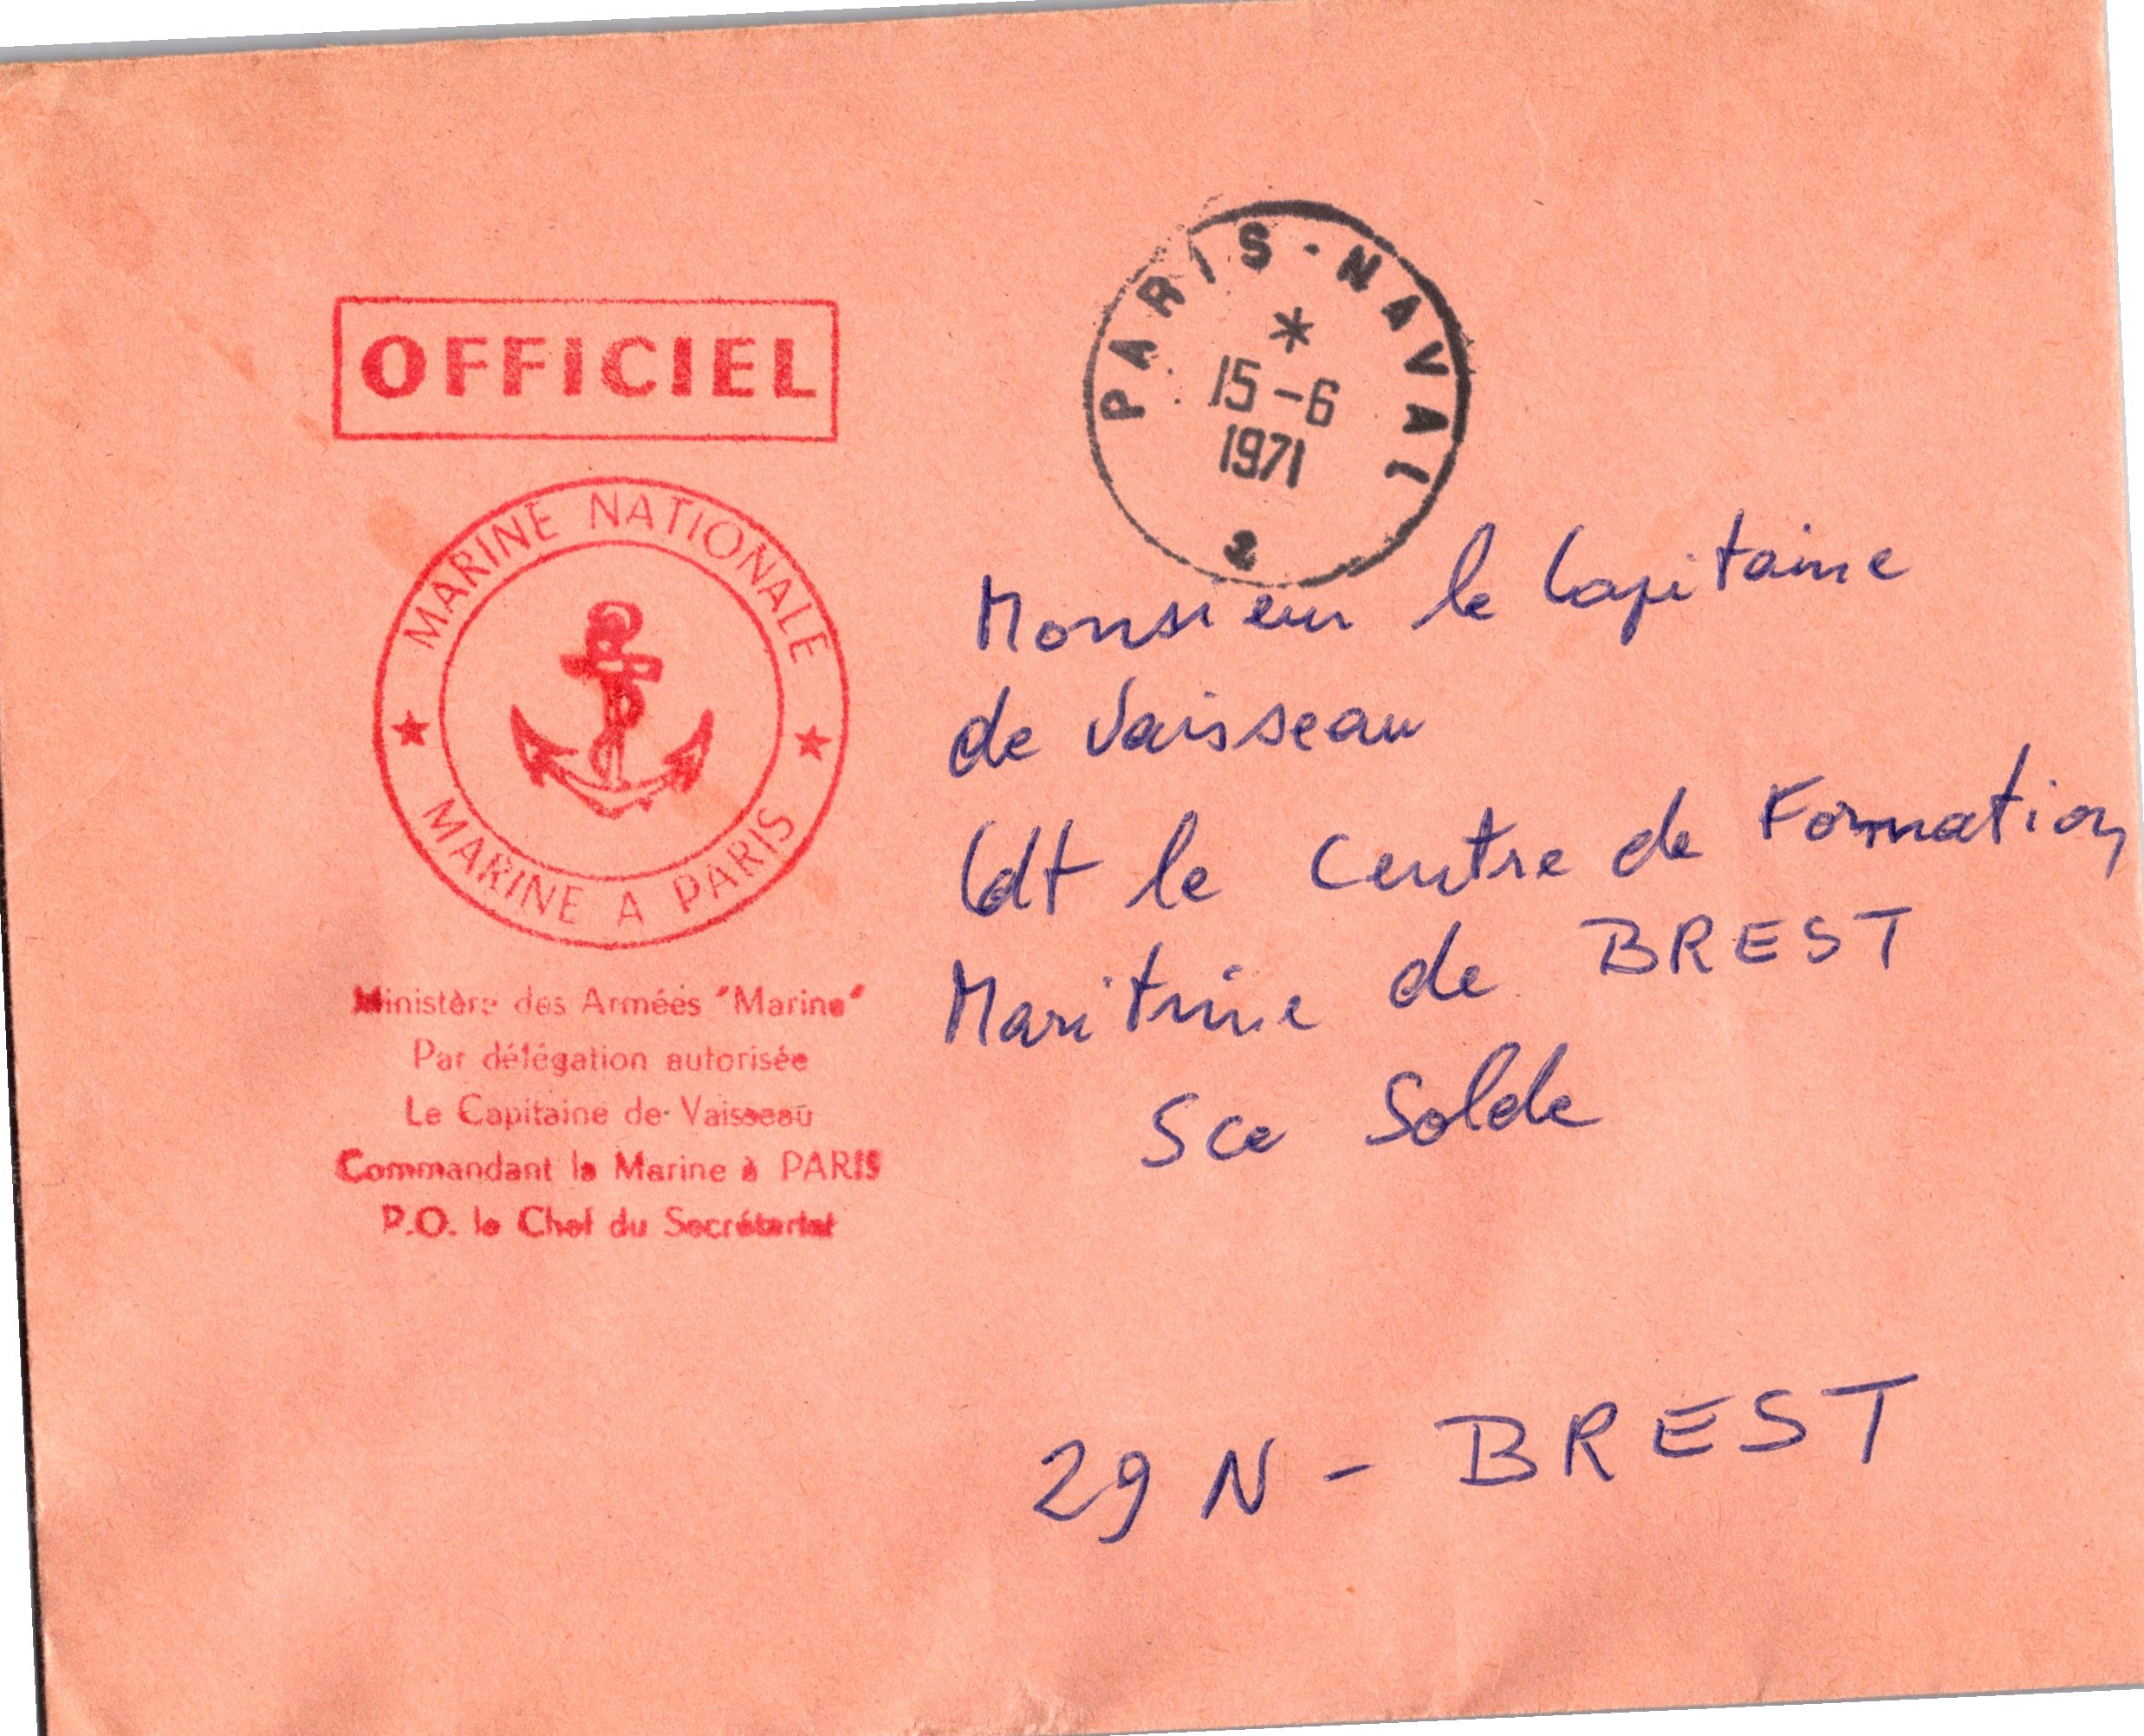 OFFICIEL
MARINE NATIONALE
MARINE A PARIS
Ministère des Armées "Marine"
Par délégation autorisée
Le Capitaine de Vaisseau
Commandant la Marine à PARIS
P.O. le Chef du Secrétariat
PARIS-NAVAL
15-6
1971
Monsieur le Capitaine
de Vaisseau
Cdt le Centre de Formation
Maritime de BREST
Sce Solde
29 N - BREST